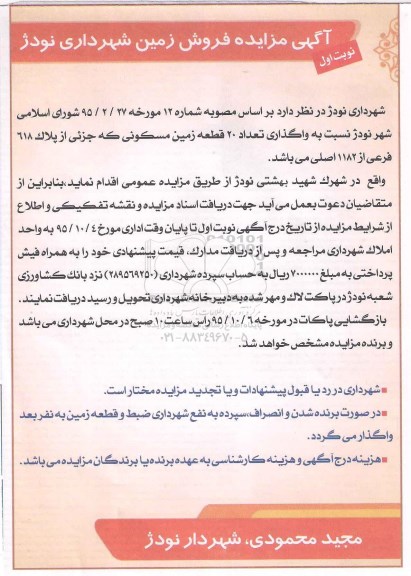 آگهی مزایده فروش زمین شهرداری نودژ
نوبت اول
شهرداری نودژ در نظر دارد بر اساس مصوبه شماره ۱۲ مورخه ۲۷ / ۲ / ۹۵ شورای اسلامی
شهر نودژ نسبت به واگذاری تعداد ۲۰ قطعه زمین مسکونی که جزئی از پلاک ۶۱۸
فرعی از ۱۱۸۲ اصلی می باشد.
واقع در شهرک شهید بهشتی نودژ از طریق مزایده عمومی اقدام نماید،بنابراین از
متقاضیان دعوت بعمل می آید جهت دریافت اسناد مزایده و نقشه تفکیکی و اطلاع
از شرایط مزایده از تاریخ درج آگهی نوبت اول تا پایان وقت اداری مورخ ۴ / ۱۰ / ۹۵ به واحد
املاک شهرداری مراجعه و پس از دریافت مدارک، قیمت پیشنهادی خود را به همراه فیش
پرداختی به مبلغ ۷۰۰۰۰۰۰ ریال به حساب سپرده شهرداری (۲۸۹۵۶۹۲۵۰) نزد بانک کشاورزی
شعبه نودژ در پاکت لاک و مهر شده به دبیرخانه شهرداری تحویل و رسید دریافت نمایند.
بازگشایی پاکات در مورخه ۶ / ۱۰ / ۹۵ راس ساعت ۱۰ صبح در محل شهرداری می باشد
۰۲۱-۸۸۳۴۹۶۷۰-۵
و برنده مزایده مشخص خواهد شد.
▪شهرداری در رد یا قبول پیشنهادات و یا تجدید مزایده مختار است.
▪در صورت برنده شدن و انصراف،سپرده به نفع شهرداری ضبط و قطعه زمین به نفر بعد
واگذار می گردد.
▪هزینه درج آگهی و هزینه کارشناسی به عهده برنده یا برندگان مزایده می باشد.
مجید محمودی، شهردار نودژ